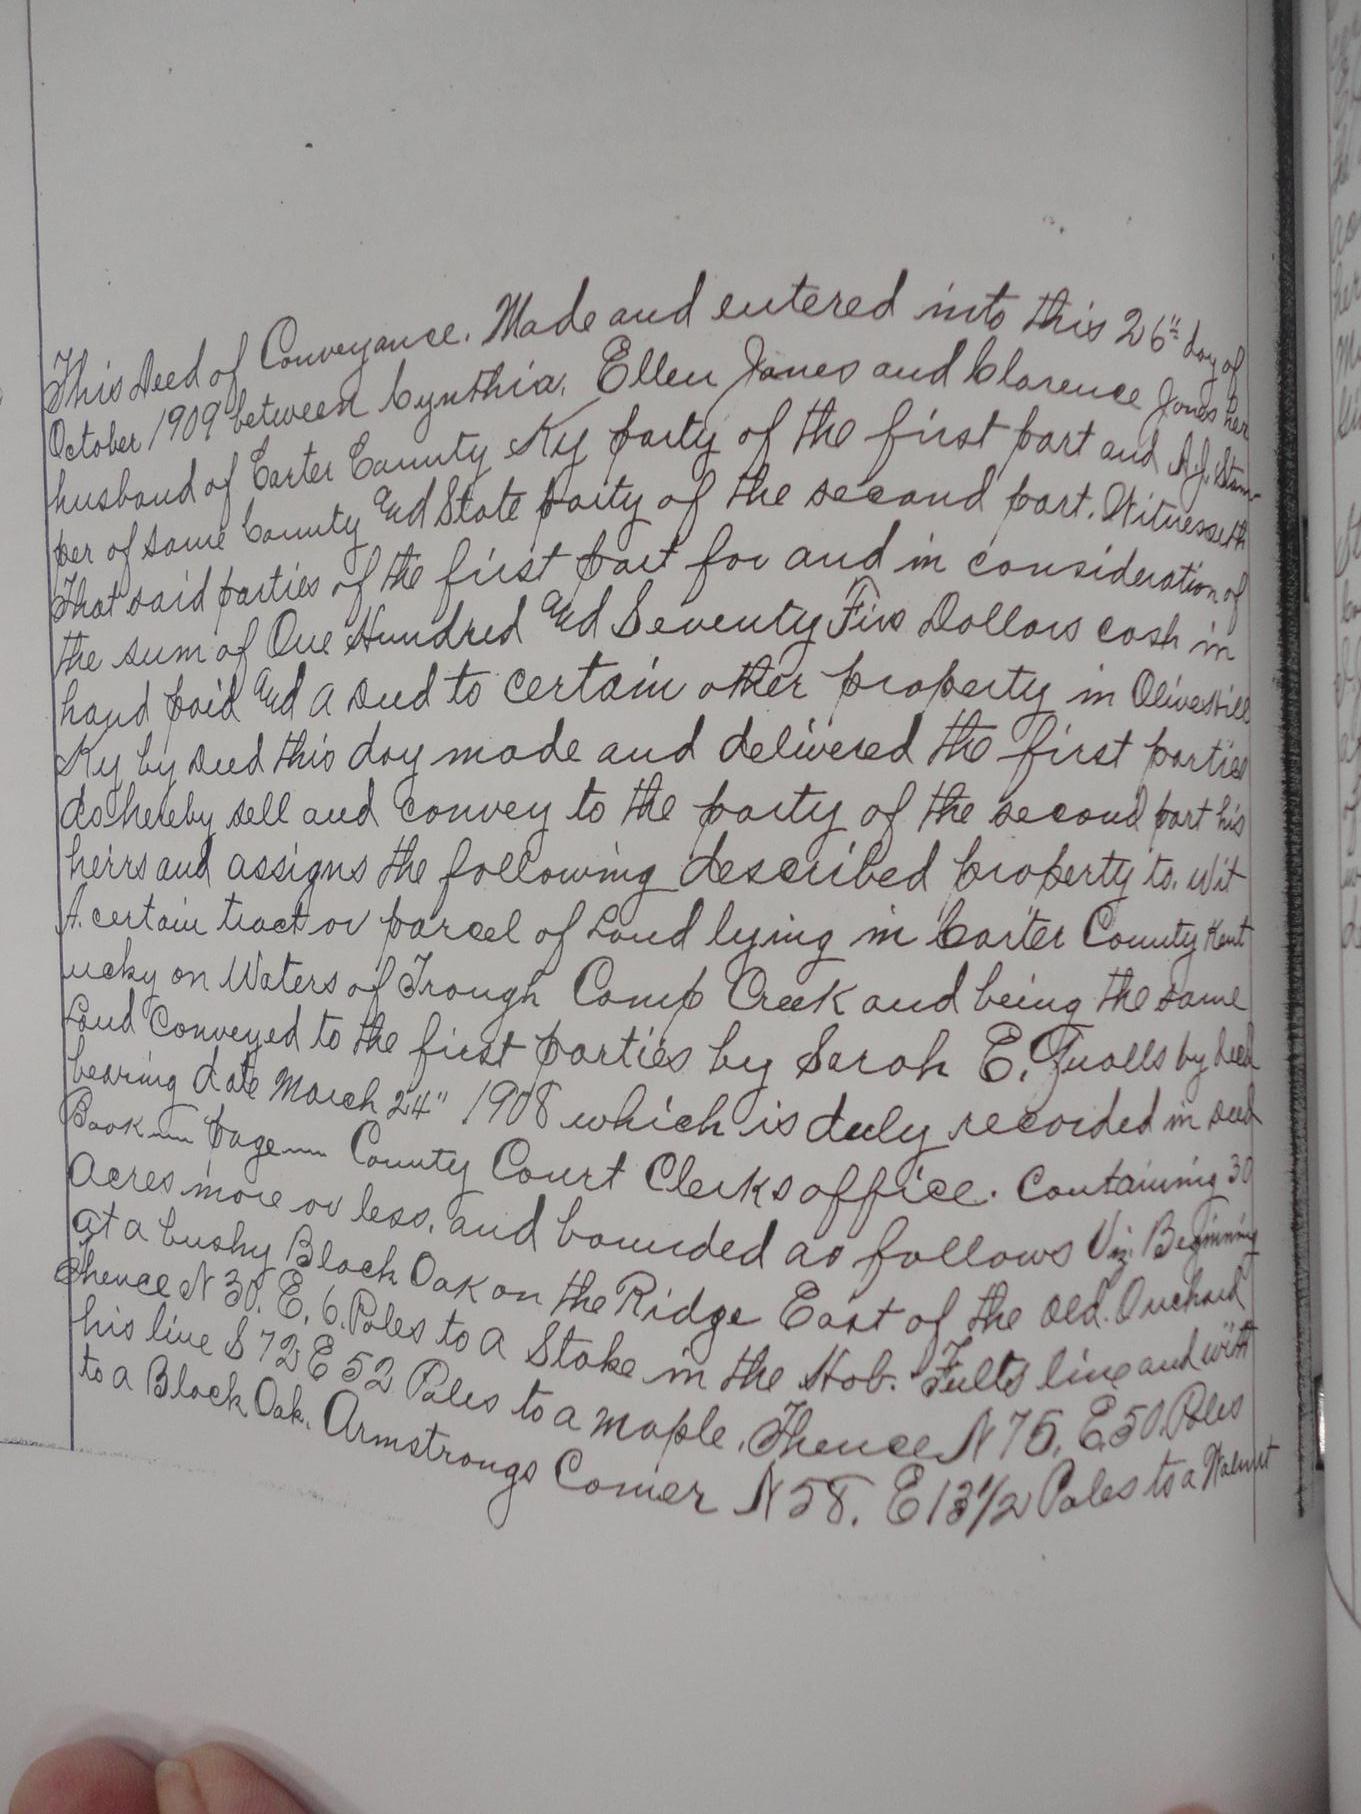 This Deed of Conveyance. Made and entered into this 26" day of
October 1909 between Cynthia. Ellen Jones and Clarence Jones her
husband of Carter County Ky party of the first part and A.J. Stam-
per of same County and State party of the second part. Witnesseth
That said parties of the first part for and in consideration of
the sum of One Hundred and Seventy Five Dollars cash in
hand paid and a Deed to certain other property in Olivehill
Ky by Deed this day made and delivered the first parties
do hereby sell and convey to the party of the second part his
heirs and assigns the following described property to. Wit
A. certain tract or parcel of Land lying in Carter County Kent
ucky on Waters of Trough Camp Creek and being the same
Land conveyed to the first parties by Sarah E. Qualls by deed
bearing date March 24" 1908 which is duly recorded in Deed
Book — page — County Court Clerks office. Containing 30
Acres more or less, and bounded as follows Viz: Beginning
at a bushy Black Oak on the Ridge East of the old. Orchard
Thence N 30. E. 6. Poles to a Stake in the Hob. Fults line and with
his line S 72 E 52 Poles to a maple. Thence N 75. E. 50. Poles
to a Black Oak. Armstrongs Corner N 58. E 13 1/2 Poles to a Walnut